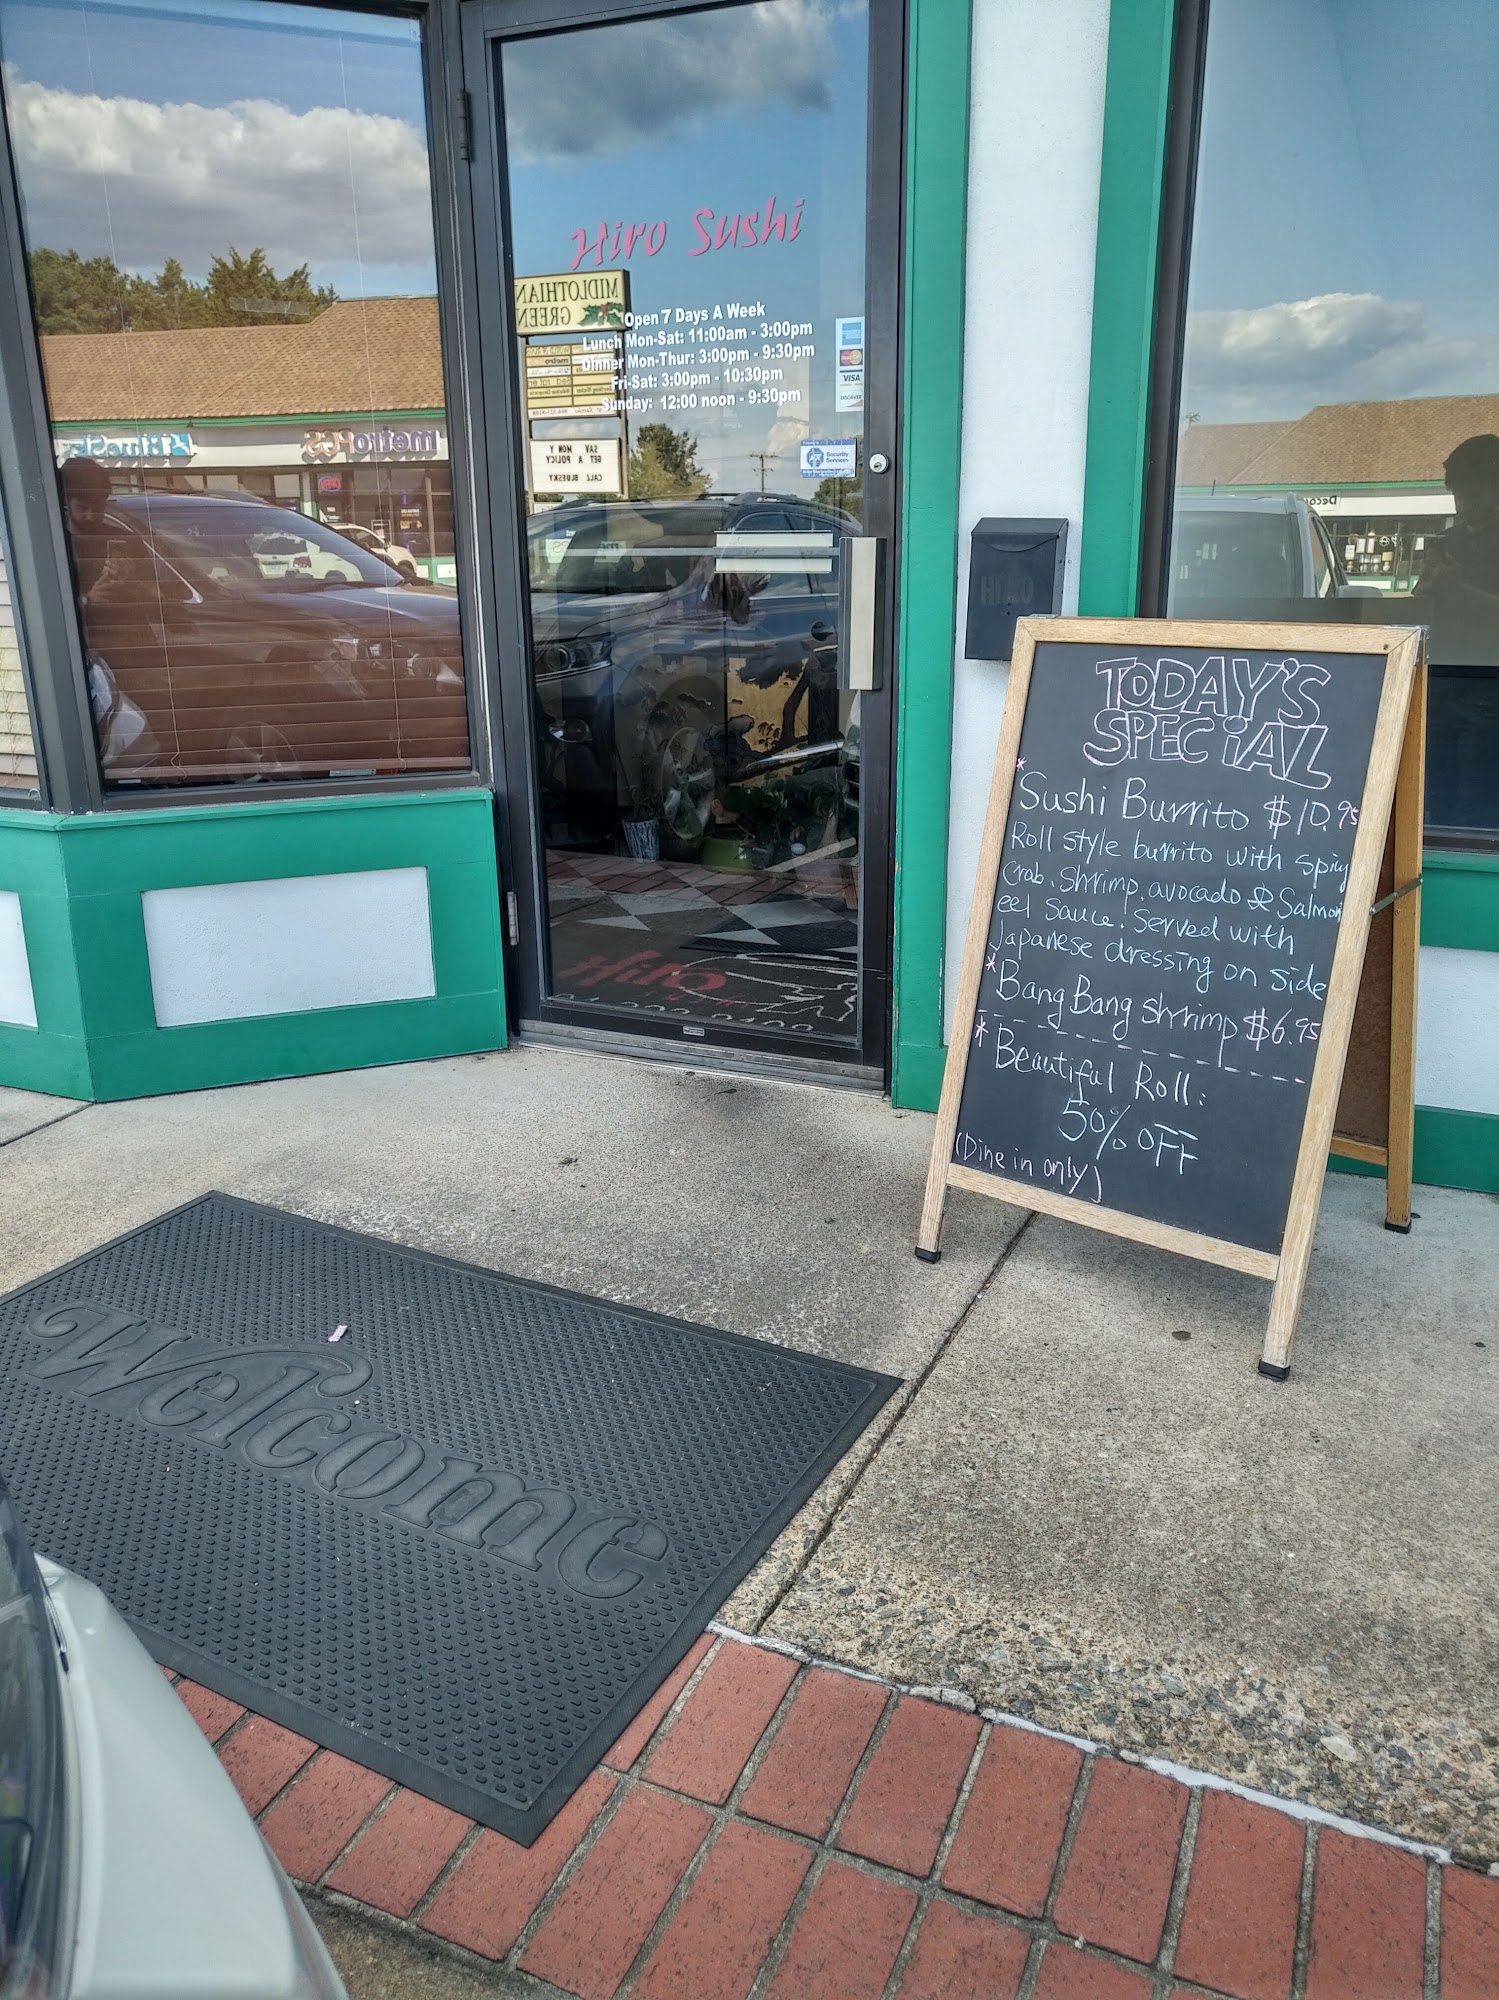 Hiro Sushi
MIDLOTHIAN
GREEN
Open 7 Days A Week
Lunch Mon-Sat: 11:00am - 3:00pm
Dinner Mon-Thur: 3:00pm - 9:30pm
Fri-Sat: 3:00pm - 10:30pm
Sunday: 12:00 noon - 9:30pm
metro
SAV MON Y
GET A POLICY
CALL BLUESKY
MasterCard
VISA
DISCOVER
ADT
Security
Services
BlueSky
metroPCS
Decor
HIRO
TODAY'S
SPECiAL
*Sushi Burrito $10.95
Roll style burrito with spicy
Crab. Shrimp. avocado & Salmon
eel Sauce. Served with
Japanese dressing on side
*Bang Bang shrimp $6.95
*Beautiful Roll:
50% OFF
(Dine in only)
Hiro
Welcome